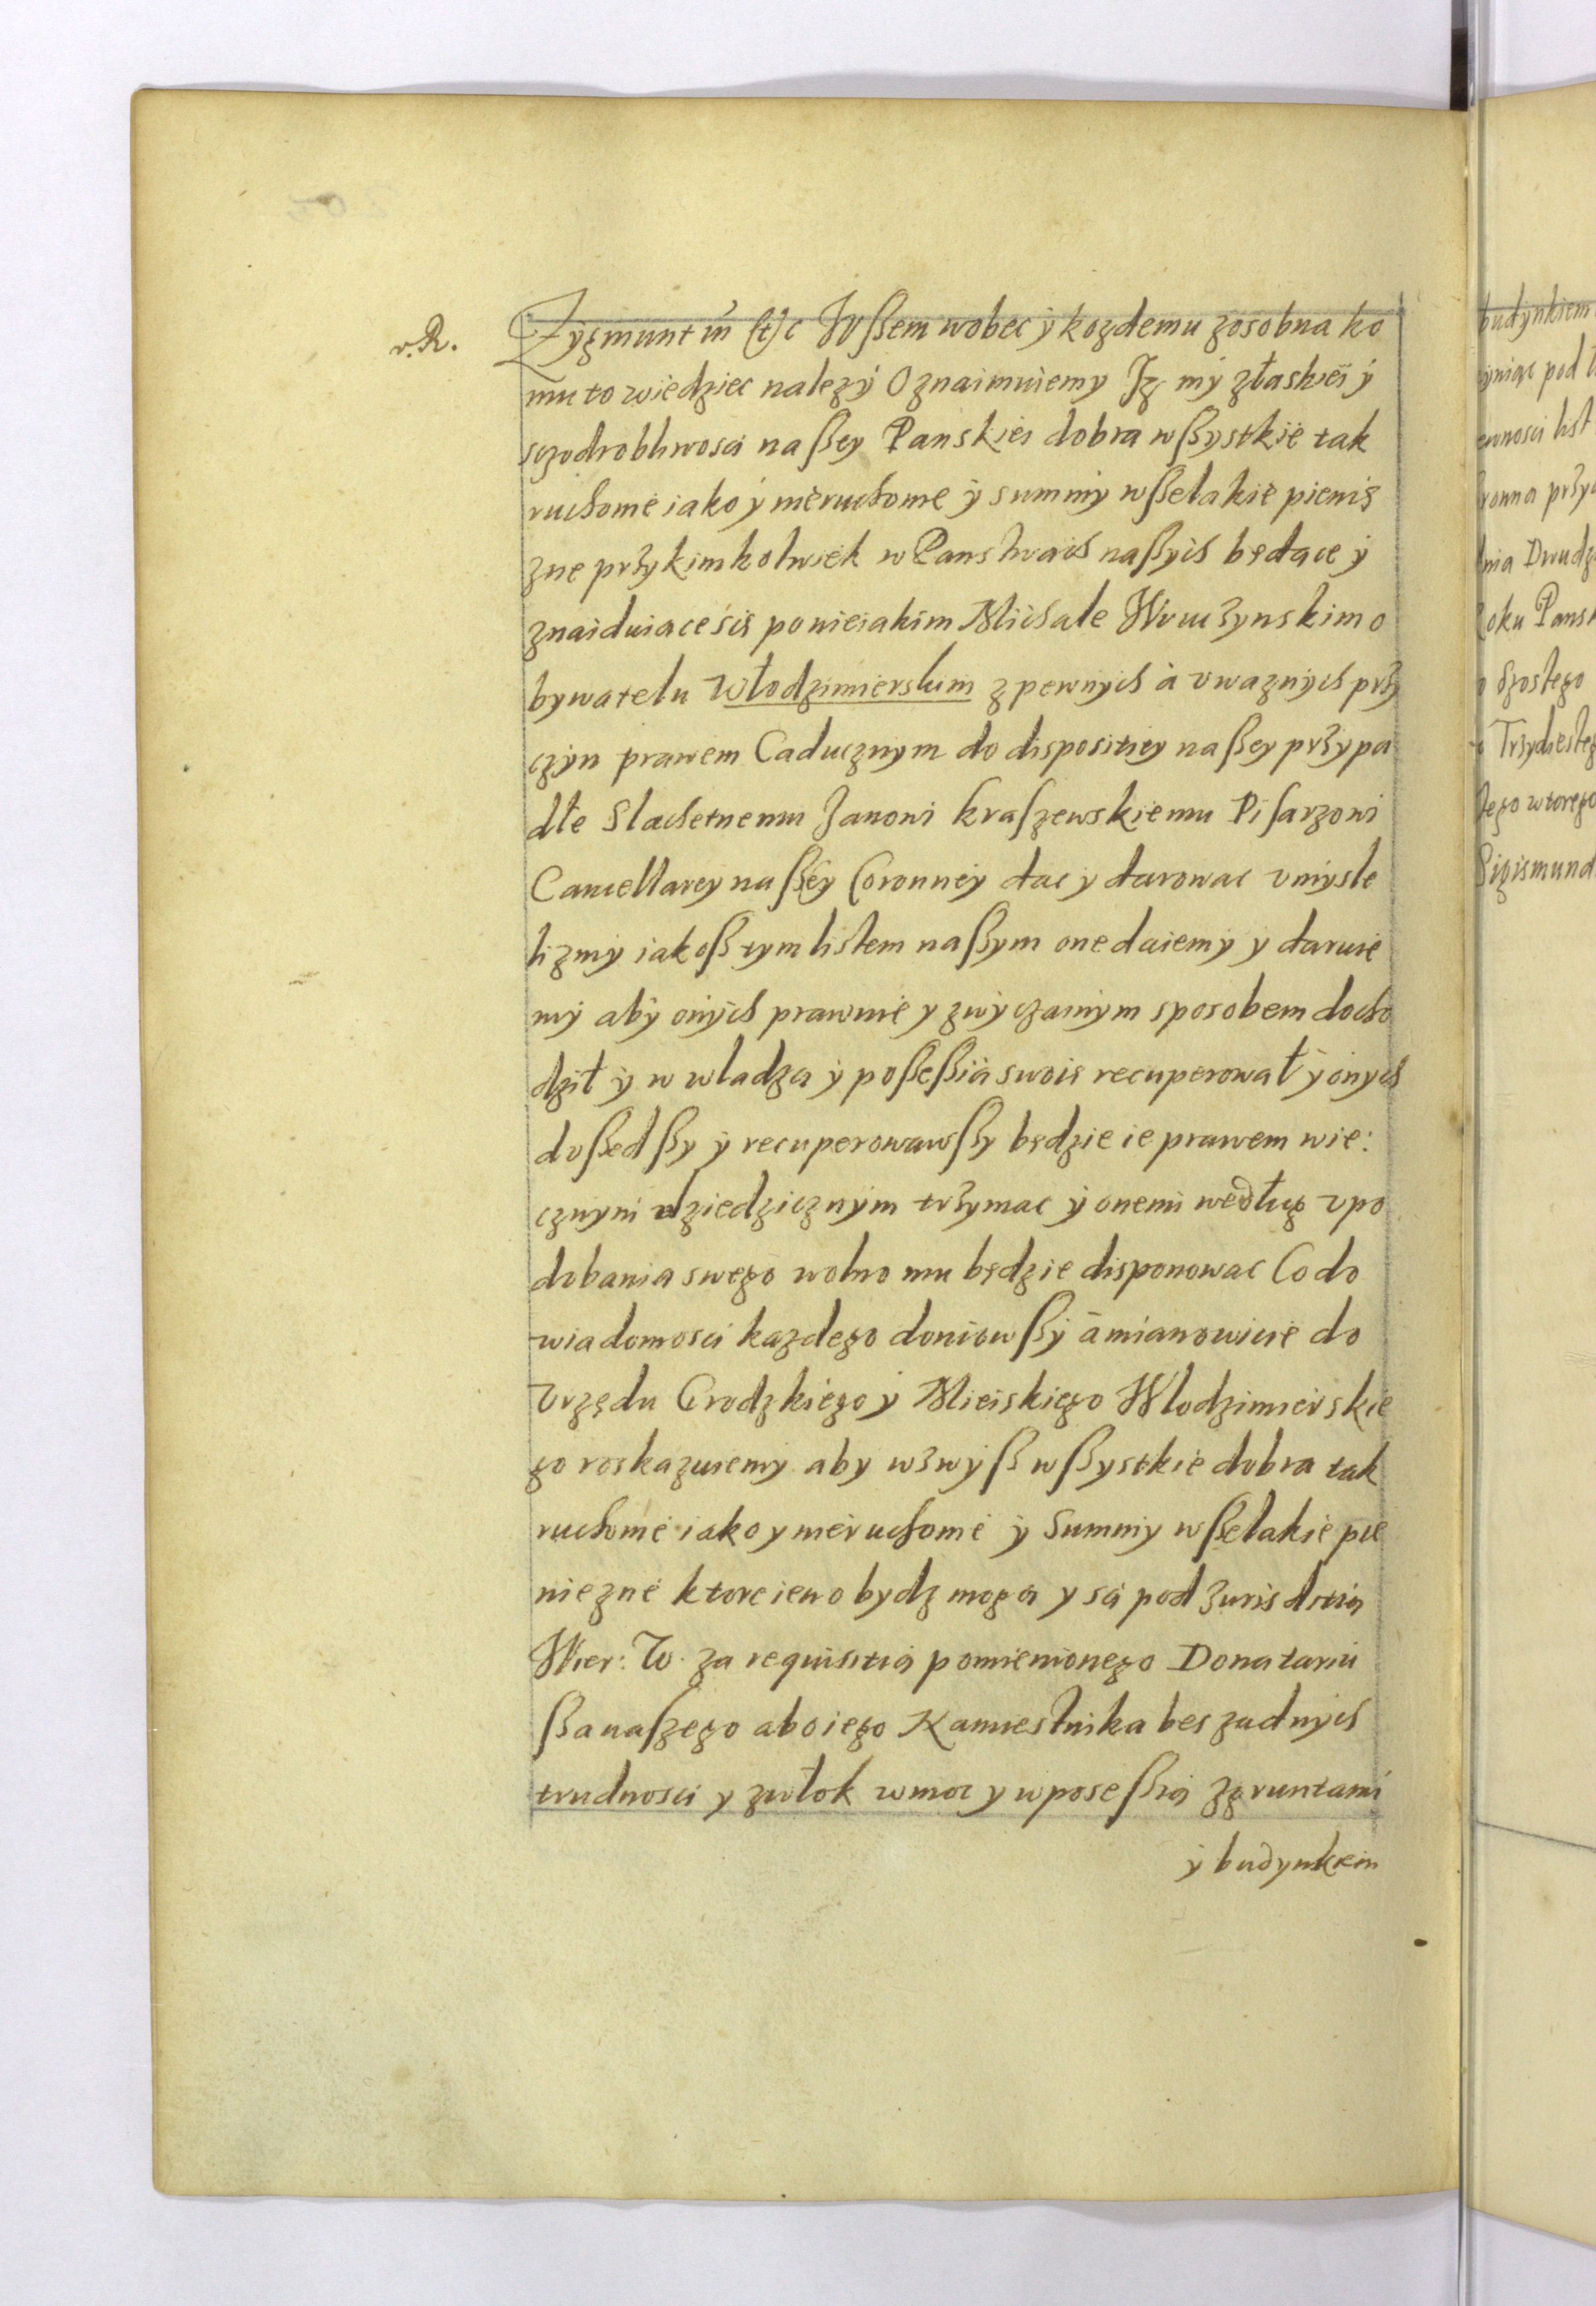 v. R.
Zygmunt III (t)c Wſßem wobec ÿ kozdemu zosobna ko
mu to wiedziec nalezÿ Oznaimuiemy Jz mÿ złaskieÿ ÿ
sczodrobliwosci naſßey Panskiei dobra wſßystkie tak
ruchome iako ÿ nieruchome ÿ summÿ wſßelakie pienię
zne przykimkolwiek w Panstwach naſßÿch będące ÿ
znaiduiące się po nieiakim Michale Wruczynskim o
bywatelu Włodzimierskim z pewnÿch à vwaznÿch przy
czÿn prawem Caducznym do dispositiey naſßey przypa
dłe Slachetnemu Janowi Kraſzewskiemu Piſarzowi
Cancellarey naſßey Coronneÿ dac y darowac vmÿsle
lizmÿ iakoſß tym listem naſßym one daiemÿ ÿ daruie
mÿ abÿ onÿch prawnie y zwÿczainÿm sposobem docho
dził ÿ w władzą ÿ poſßeſßią swoię recuperował ÿ onych
doſßedſßy ÿ recuperowawſßy będzie ie prawem wie:
cznÿm dziedzicznÿm trzymac ÿ onemi według vpo
dobania swego wolno mu będzie disponowac Co do
wiadomosci kazdego doniowſßÿ à mianowicie do
Vrzędu Grodzkiego ÿ Mieiskiego Wlodzimierskie
go roskazuiemÿ aby wzwÿſß wſßystkie dobra tak
ruchome iako y nieruchome ÿ Summÿ wſßelakie pie
niezne ktore ieno bydz mogą y są pod Jurisdictią
Wier: W. za requisitią pomienionego Donatariu
ſßa naſzego abo iego Namiestnika bes zadnÿch
trudnosci y zwłok w moc y w poseſßią z gruntami
ÿ budynkiem
budÿnkiem
ÿniąc pod
ewnosci list
ronna przyc
nia Dwudz
Roku Pansk
o Szostego
Trzydiesteg
tego wtorego
Sigismund